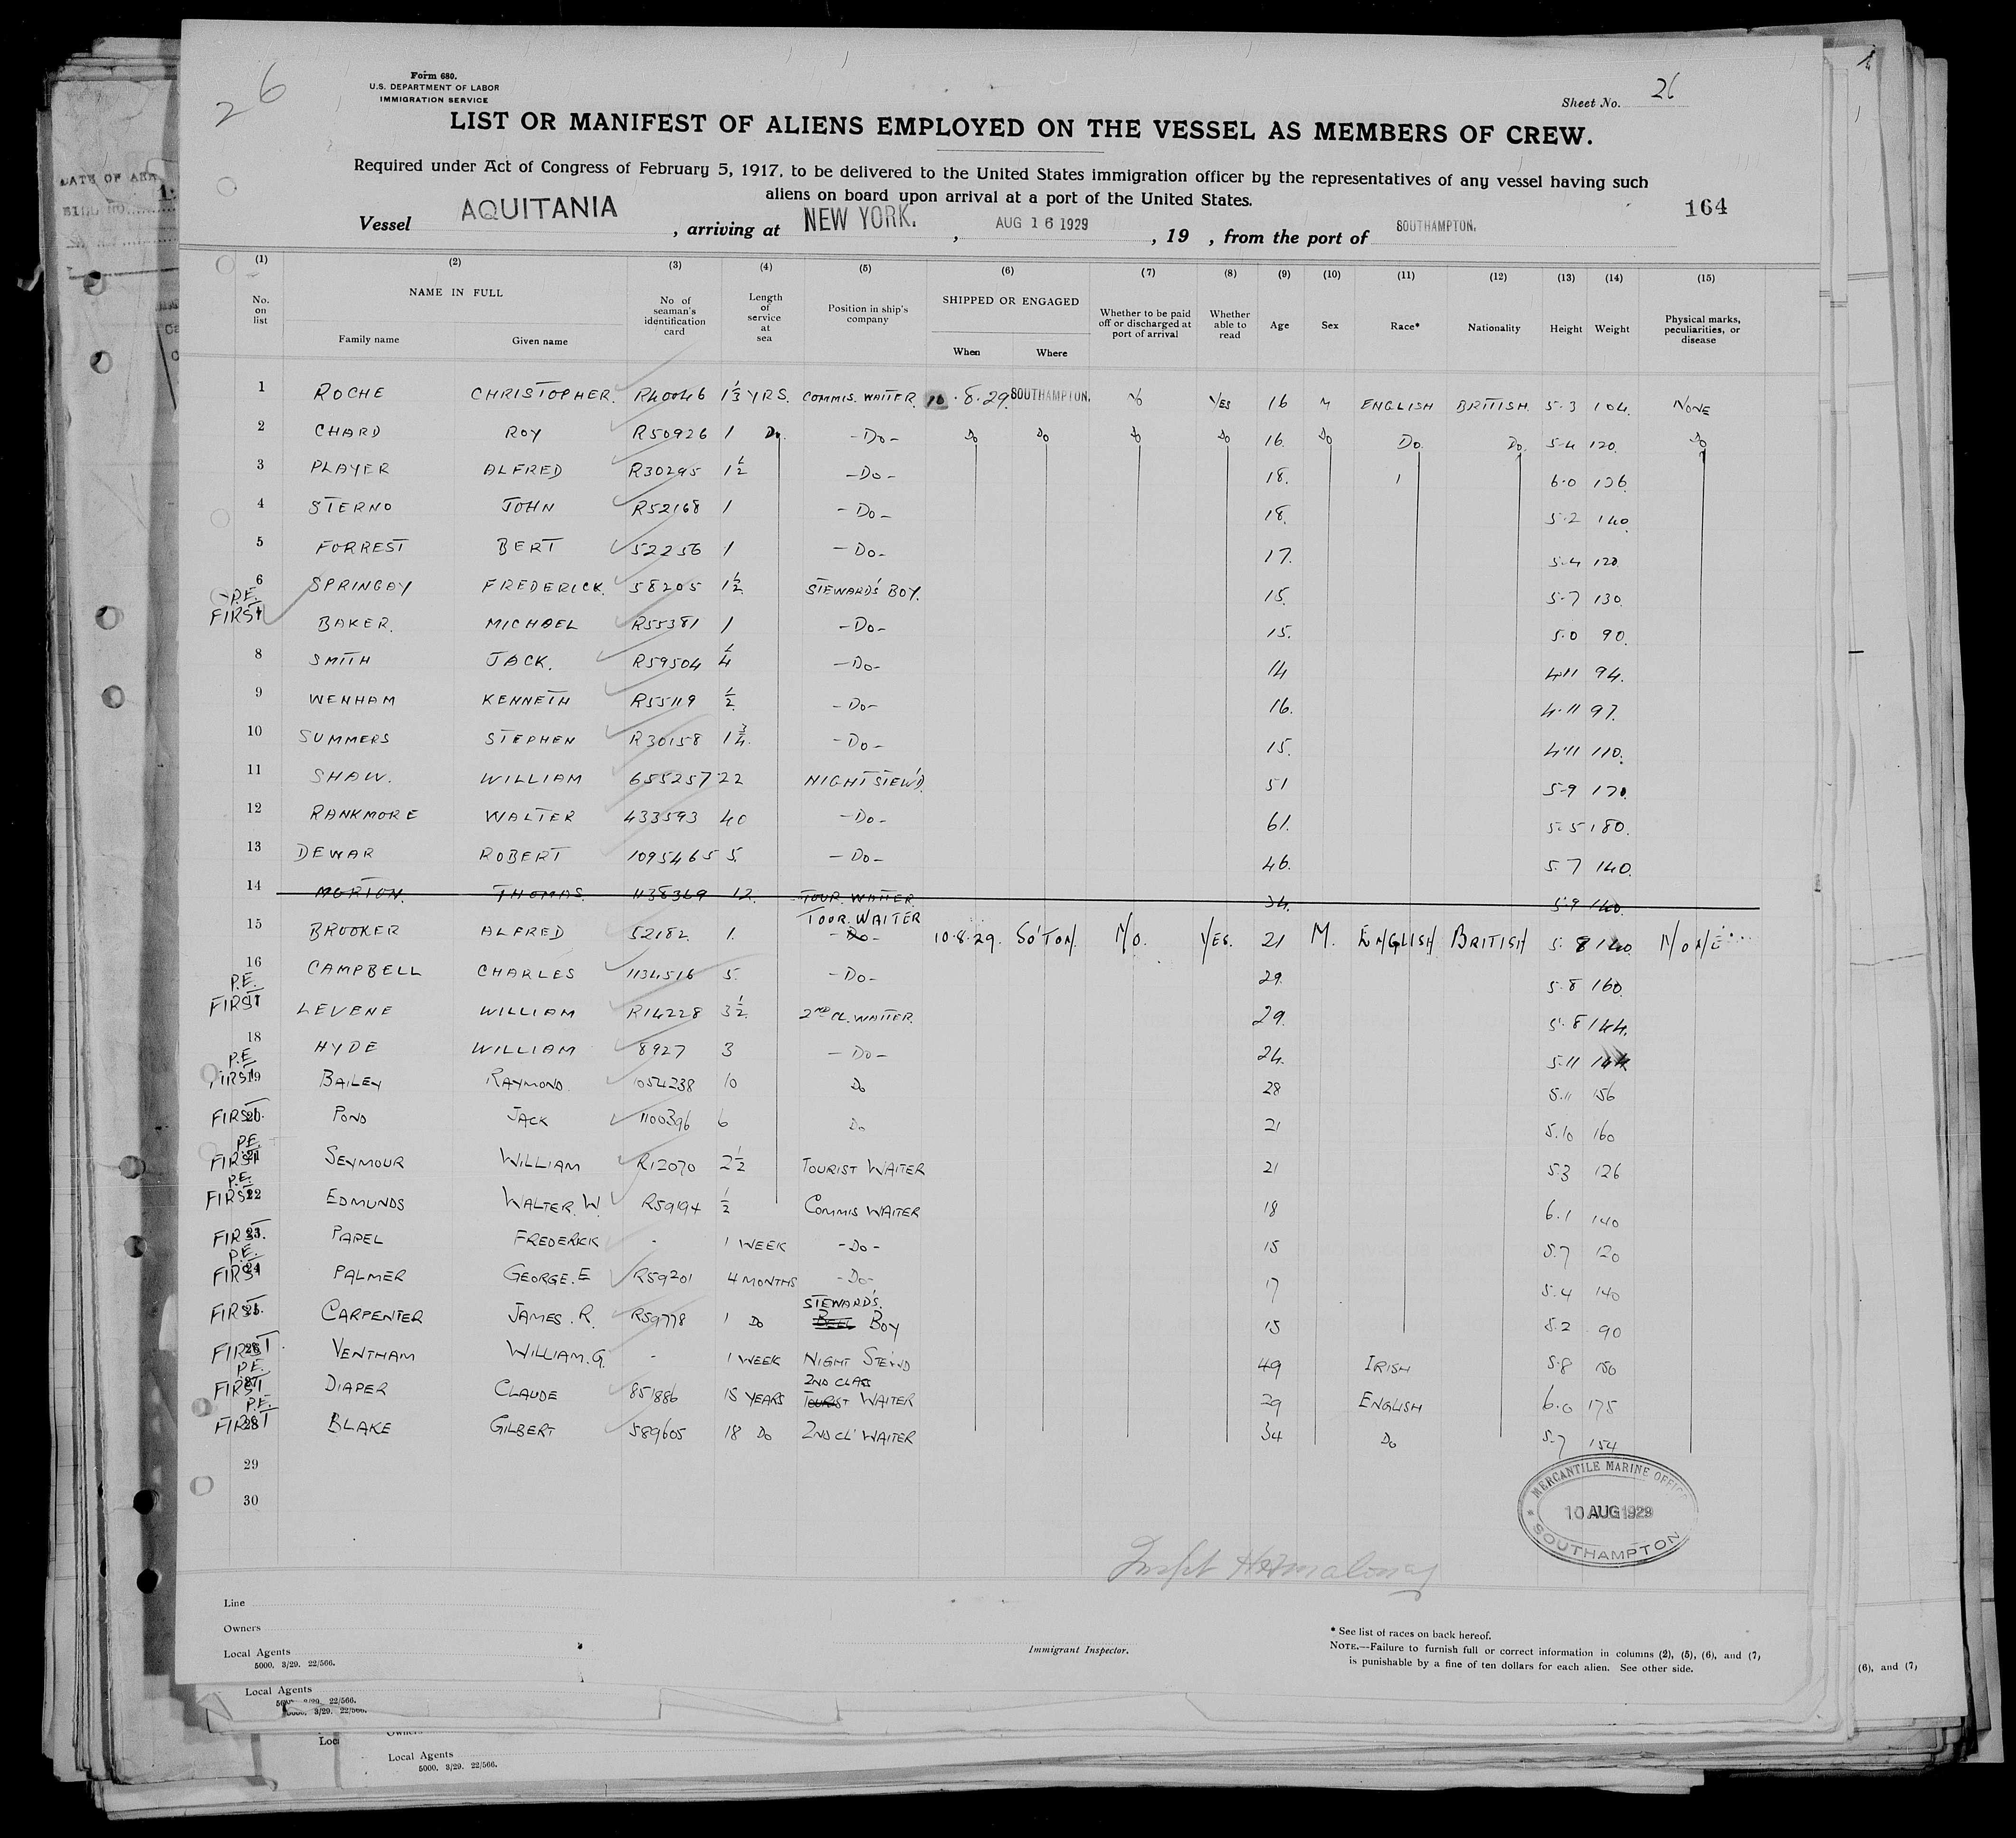 26
Form 680.
U.S. DEPARTMENT OF LABOR
IMMIGRATION SERVICE
Sheet No. 26
LIST OR MANIFEST OF ALIENS EMPLOYED ON THE VESSEL AS MEMBERS OF CREW.
Required under Act of Congress of February 5, 1917, to be delivered to the United States immigration officer by the representatives of any vessel having such
aliens on board upon arrival at a port of the United States.
164
Vessel AQUITANIA, arriving at NEW YORK., AUG 16 1929, 19 , from the port of SOUTHAMPTON.
(1) (2) (3) (4) (5) (6) (7) (8) (9) (10) (11) (12) (13) (14) (15)
No. on list NAME IN FULL Family name Given name No of seaman's identification card Length of service at sea Position in ship's company SHIPPED OR ENGAGED When Where Whether to be paid off or discharged at port of arrival Whether able to read Age Sex Race* Nationality Height Weight Physical marks, peculiarities, or disease
1 ROCHE CHRISTOPHER. R40046 1 1/3 YRS. COMMIS. WAITER. 10.8.29. SOUTHAMPTON. No YES 16 M ENGLISH BRITISH. 5.3 104. NONE
2 CHARD ROY R50926 1 Do. -Do- Do Do Do Do 16. Do Do. Do. 5-4 120. Do
3 PLAYER ALFRED R30295 1 1/2 -Do- 18. 6.0 136.
4 STERNO JOHN R52168 1 -Do- 18. 5.2 140.
5 FORREST BERT 52256 1 -Do- 17. 5.4 120.
6 SPRINGAY FREDERICK. 58205 1 1/2 STEWARD'S BOY. 15. 5.7 130.
P.E. FIRST BAKER. MICHAEL R55381 1 -Do- 15. 5.0 90.
8 SMITH JACK. R59504 1/4 -Do- 14 4.11 94.
9 WENHAM KENNETH R55119 1/2 -Do- 16. 4.11 97.
10 SUMMERS STEPHEN R30158 1 3/4. -Do- 15. 4.11 110.
11 SHAW. WILLIAM 655257 22 NIGHT STEW'D. 51 5.9 170.
12 RANKMORE WALTER 433593 40 -Do- 61. 5.5 180.
13 DEWAR ROBERT 1095465 5. -Do- 46. 5.7 140.
14 MORTON. THOMAS. 1138369 12. TOUR. WAITER. 34. 5.9 140.
15 BROOKER ALFRED 52182. 1. TOUR. WAITER -Do- 10.8.29. SO'TON. No. YES. 21 M. ENGLISH BRITISH 5.8 140. NONE
16 CAMPBELL CHARLES 1134516 5. -Do- 29. 5.8 160.
P.E. FIRST LEVENE WILLIAM R14228 3 1/2. 2ND CL. WAITER. 29. 5.8 144.
18 HYDE WILLIAM 8927 3 -Do- 24. 5.11 144
P.E. FIRST 19 BAILEY RAYMOND. 1054238 10 Do 28 5.11 156
FIRST 20. POND JACK 1100396 6 Do 21 5.10 160
P.E. FIRST 21 SEYMOUR WILLIAM R12070 2 1/2 TOURIST WAITER 21 5.3 126
P.E. FIRST 22 EDMUNDS WALTER. W. R59194 1/2 COMMIS WAITER 18 6.1 140
FIRST 23. PAPEL FREDERICK - 1 WEEK -Do- 15 5.7 120
P.E. FIRST 24 PALMER GEORGE. E R59201 4 MONTHS -Do- 17 5.4 140
FIRST 25. CARPENTER JAMES. R. R59778 1 Do STEWARD'S. BELL BOY 15 5.2 90
FIRST 26. VENTHAM WILLIAM. G. - 1 WEEK NIGHT STEWD 49 IRISH 5.8 150
P.E. FIRST 27 DIAPER CLAUDE 851886 15 YEARS 2ND CLASS TOURIST WAITER 29 ENGLISH 6.0 175
P.E. FIRST 28 BLAKE GILBERT 589605 18 Do 2ND CL' WAITER 34 Do 5.7 154
29
30
MERCANTILE MARINE OFFICE
10 AUG 1929
SOUTHAMPTON
Line
Owners
Local Agents
5000. 3/29. 22/566.
Immigrant Inspector.
* See list of races on back hereof.
NOTE.—Failure to furnish full or correct information in columns (2), (5), (6), and (7)
is punishable by a fine of ten dollars for each alien. See other side.
(6), and (7)
Local Agents
3/29. 22/566.
Local Agents
5000. 3/29. 22/566.